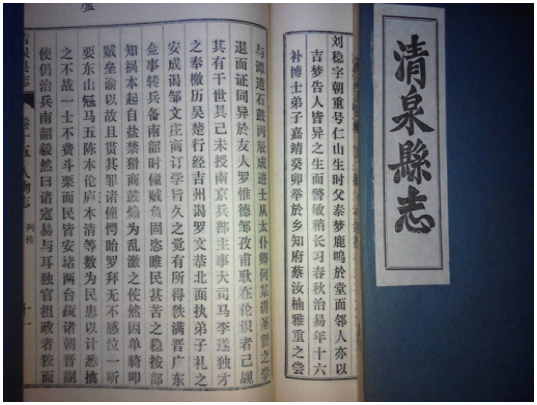 清泉縣志
刘稳字朝重号仁山生时父泰梦鹿鸣於堂而邻人亦以
吉梦告人皆异之生而警敏稍长习春秋治易年十六
补博士弟子嘉靖癸卯举於乡知府蔡汝楠雅重之尝
与谭道石鼓丙辰成进士从太仆卿何某讲圣贤之学
退面证同异於友人罗惟德邹孜甫耿在伦识者己觇
其有干世具己未授南京兵部主事大司马李遂独才
之奉檄历吴楚行经吉州谒罗文恭北面执弟子礼之
安成谒邹文庄商订学旨久之觉有所得满晋广东
佥事转兵备南韶时獞贼负固恣睢民甚苦之稳按部
知祸本起自盐禁猾商鼓煽为乱激之使然因单骑叩
贼垒谕以故且贳其罪诸獞愕眙罗拜无不感泣一听
要东山冦马五陈本伦庐本清等数为民患以计悉擒
之不战一士不费斗粟而民皆安堵两台疏诸朝晋副
使仍治兵南韶毅然曰诸寇易与耳独官祖政者狡而
清泉县志 卷十五 人物志 列传 十一